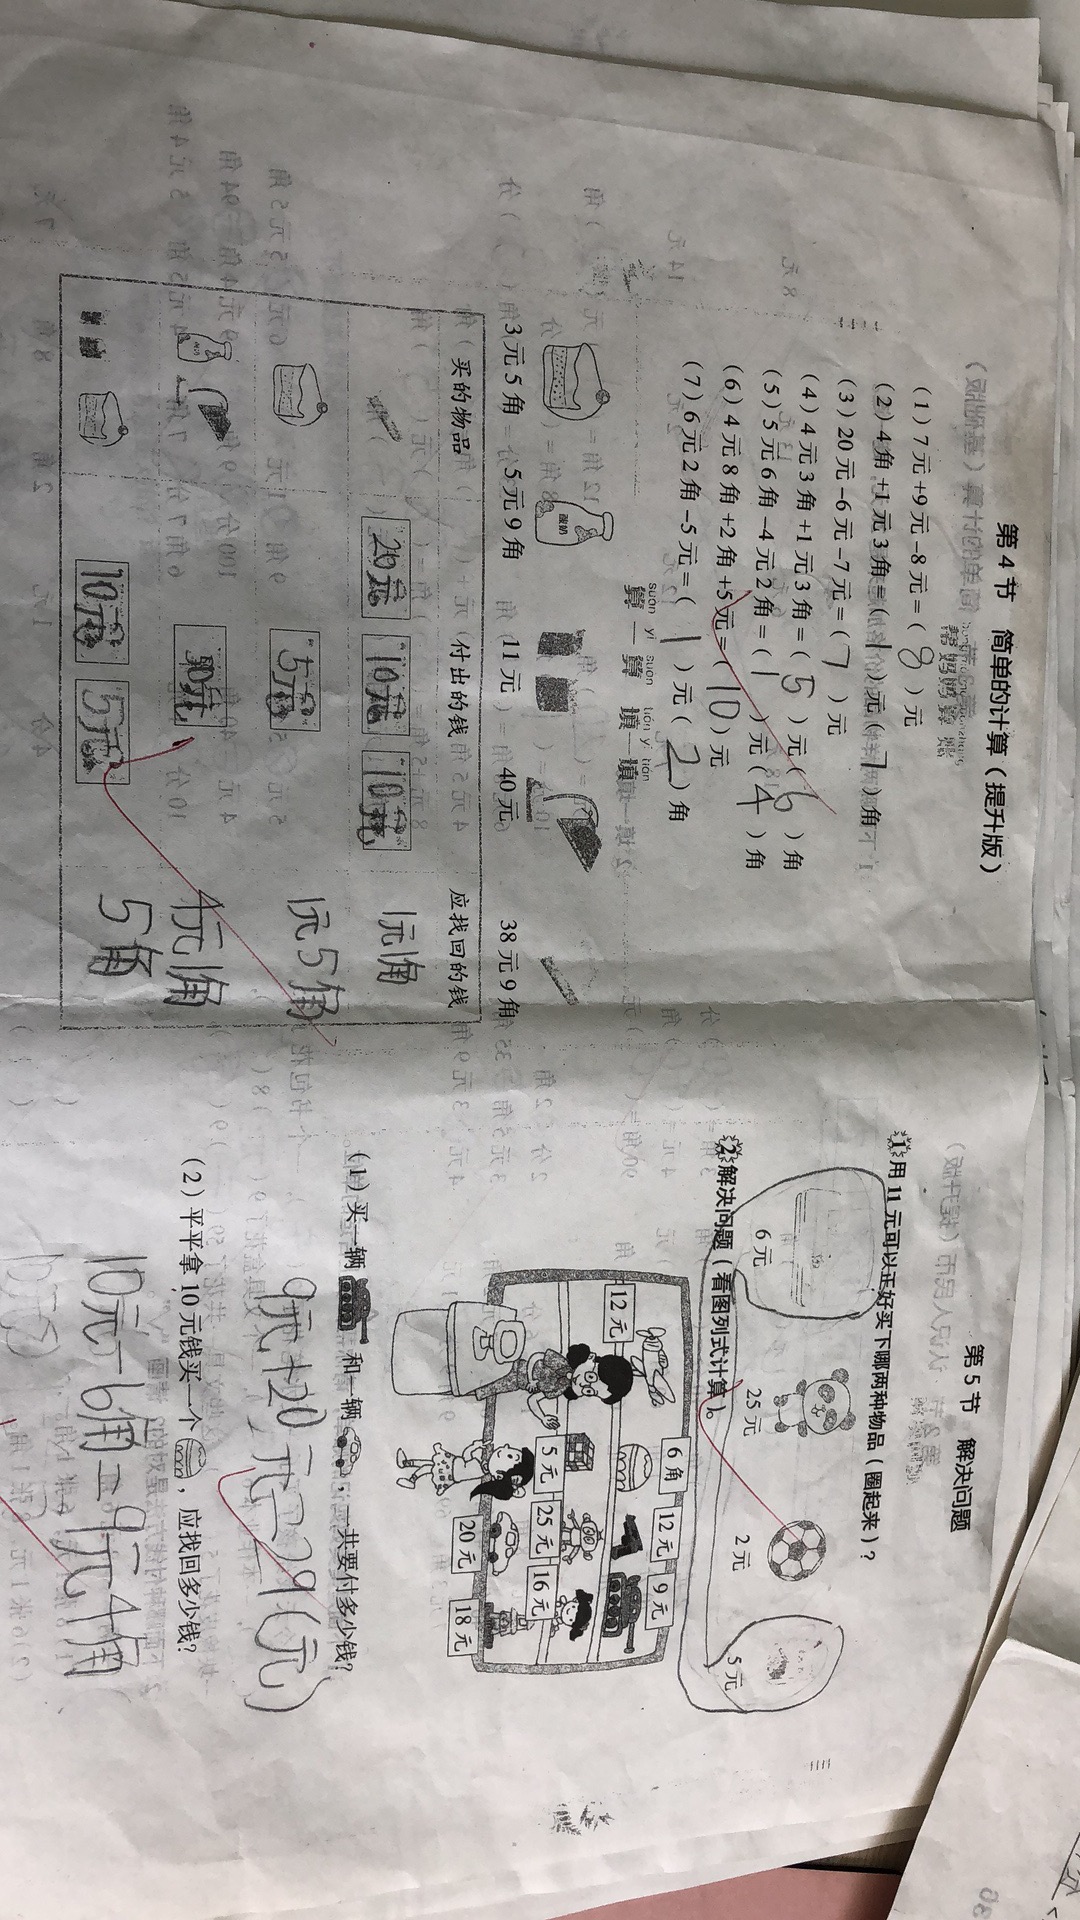 第4节 简单的计算（提升版）
（1）7元+9元-8元=（8）元
（2）4角+1元3角=（1）元（7）角
（3）20元-6元-7元=（7）元
（4）4元3角+1元3角=（5）元（6）角
（5）5元6角-4元2角=（1）元（4）角
（6）4元8角+2角+5元=（10）元
（7）6元2角-5元=（1）元（2）角
suàn yi suàn tián yi tián
算一算 填一填
酸奶
3元5角 5元9角 11元 40元 38元9角
买的物品 付出的钱 应找回的钱
20元 10元 10元 1元1角
5元 1元5角
50元 4元1角
10元 5元 5角
第5节 解决问题
1 用11元可以正好买下哪两种物品（圈起来）？
6元 25元 2元 5元
2 解决问题（看图列式计算）。
12元 6角 12元 9元
5元 25元 16元
20元 18元
（1）买一辆和一辆，一共要付多少钱？
9元+20元=29（元）
（2）平平拿10元钱买一个，应找回多少钱？
10元-6角=9元4角